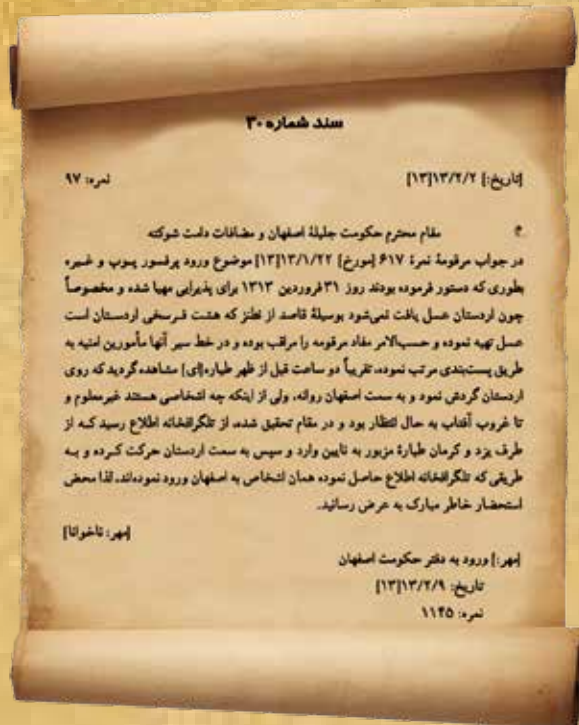 سند شماره ۳۰
[تاریخ:] ۱۳/۲/۲[۱۳] نمره: ۹۷
مقام محترم حکومت جلیلهٔ اصفهان و مضافات دامت شوکته
در جواب مرقومهٔ نمرهٔ ۶۱۷ [مورخ] ۱۳/۱/۲۲[۱۳] موضوع ورود پرفسور پوپ و غیره
بطوری که دستور فرموده بودند روز ۳۱ فروردین ۱۳۱۳ برای پذیرایی مهیا شده و مخصوصاً
چون اردستان عسل یافت نمی‌شود بوسیلهٔ قاصد از نطنز که هشت فرسخی اردستان است
عسل تهیه نموده و حسب‌الامر مفاد مرقومه را مراقب بوده و در خط سیر آنها مأمورین امنیه به
طریق پست‌بندی مرتب نموده، تقریباً دو ساعت قبل از ظهر طیاره[ای] مشاهده گردید که روی
اردستان گردش نمود و به سمت اصفهان روانه، ولی از اینکه چه اشخاصی هستند غیرمعلوم و
تا غروب آفتاب به حال انتظار بود و در مقام تحقیق شده، از تلگرافخانه اطلاع رسید که از
طرف یزد و کرمان طیارهٔ مزبور به نایین وارد و سپس به سمت اردستان حرکت کرده و به
طریقی که تلگرافخانه اطلاع حاصل نموده همان اشخاص به اصفهان ورود نموده‌اند. لذا محض
استحضار خاطر مبارک به عرض رسانید.
[مهر: ناخوانا]
[مهر:] ورود به دفتر حکومت اصفهان
تاریخ: ۱۳/۲/۹[۱۳]
نمره: ۱۱۴۵